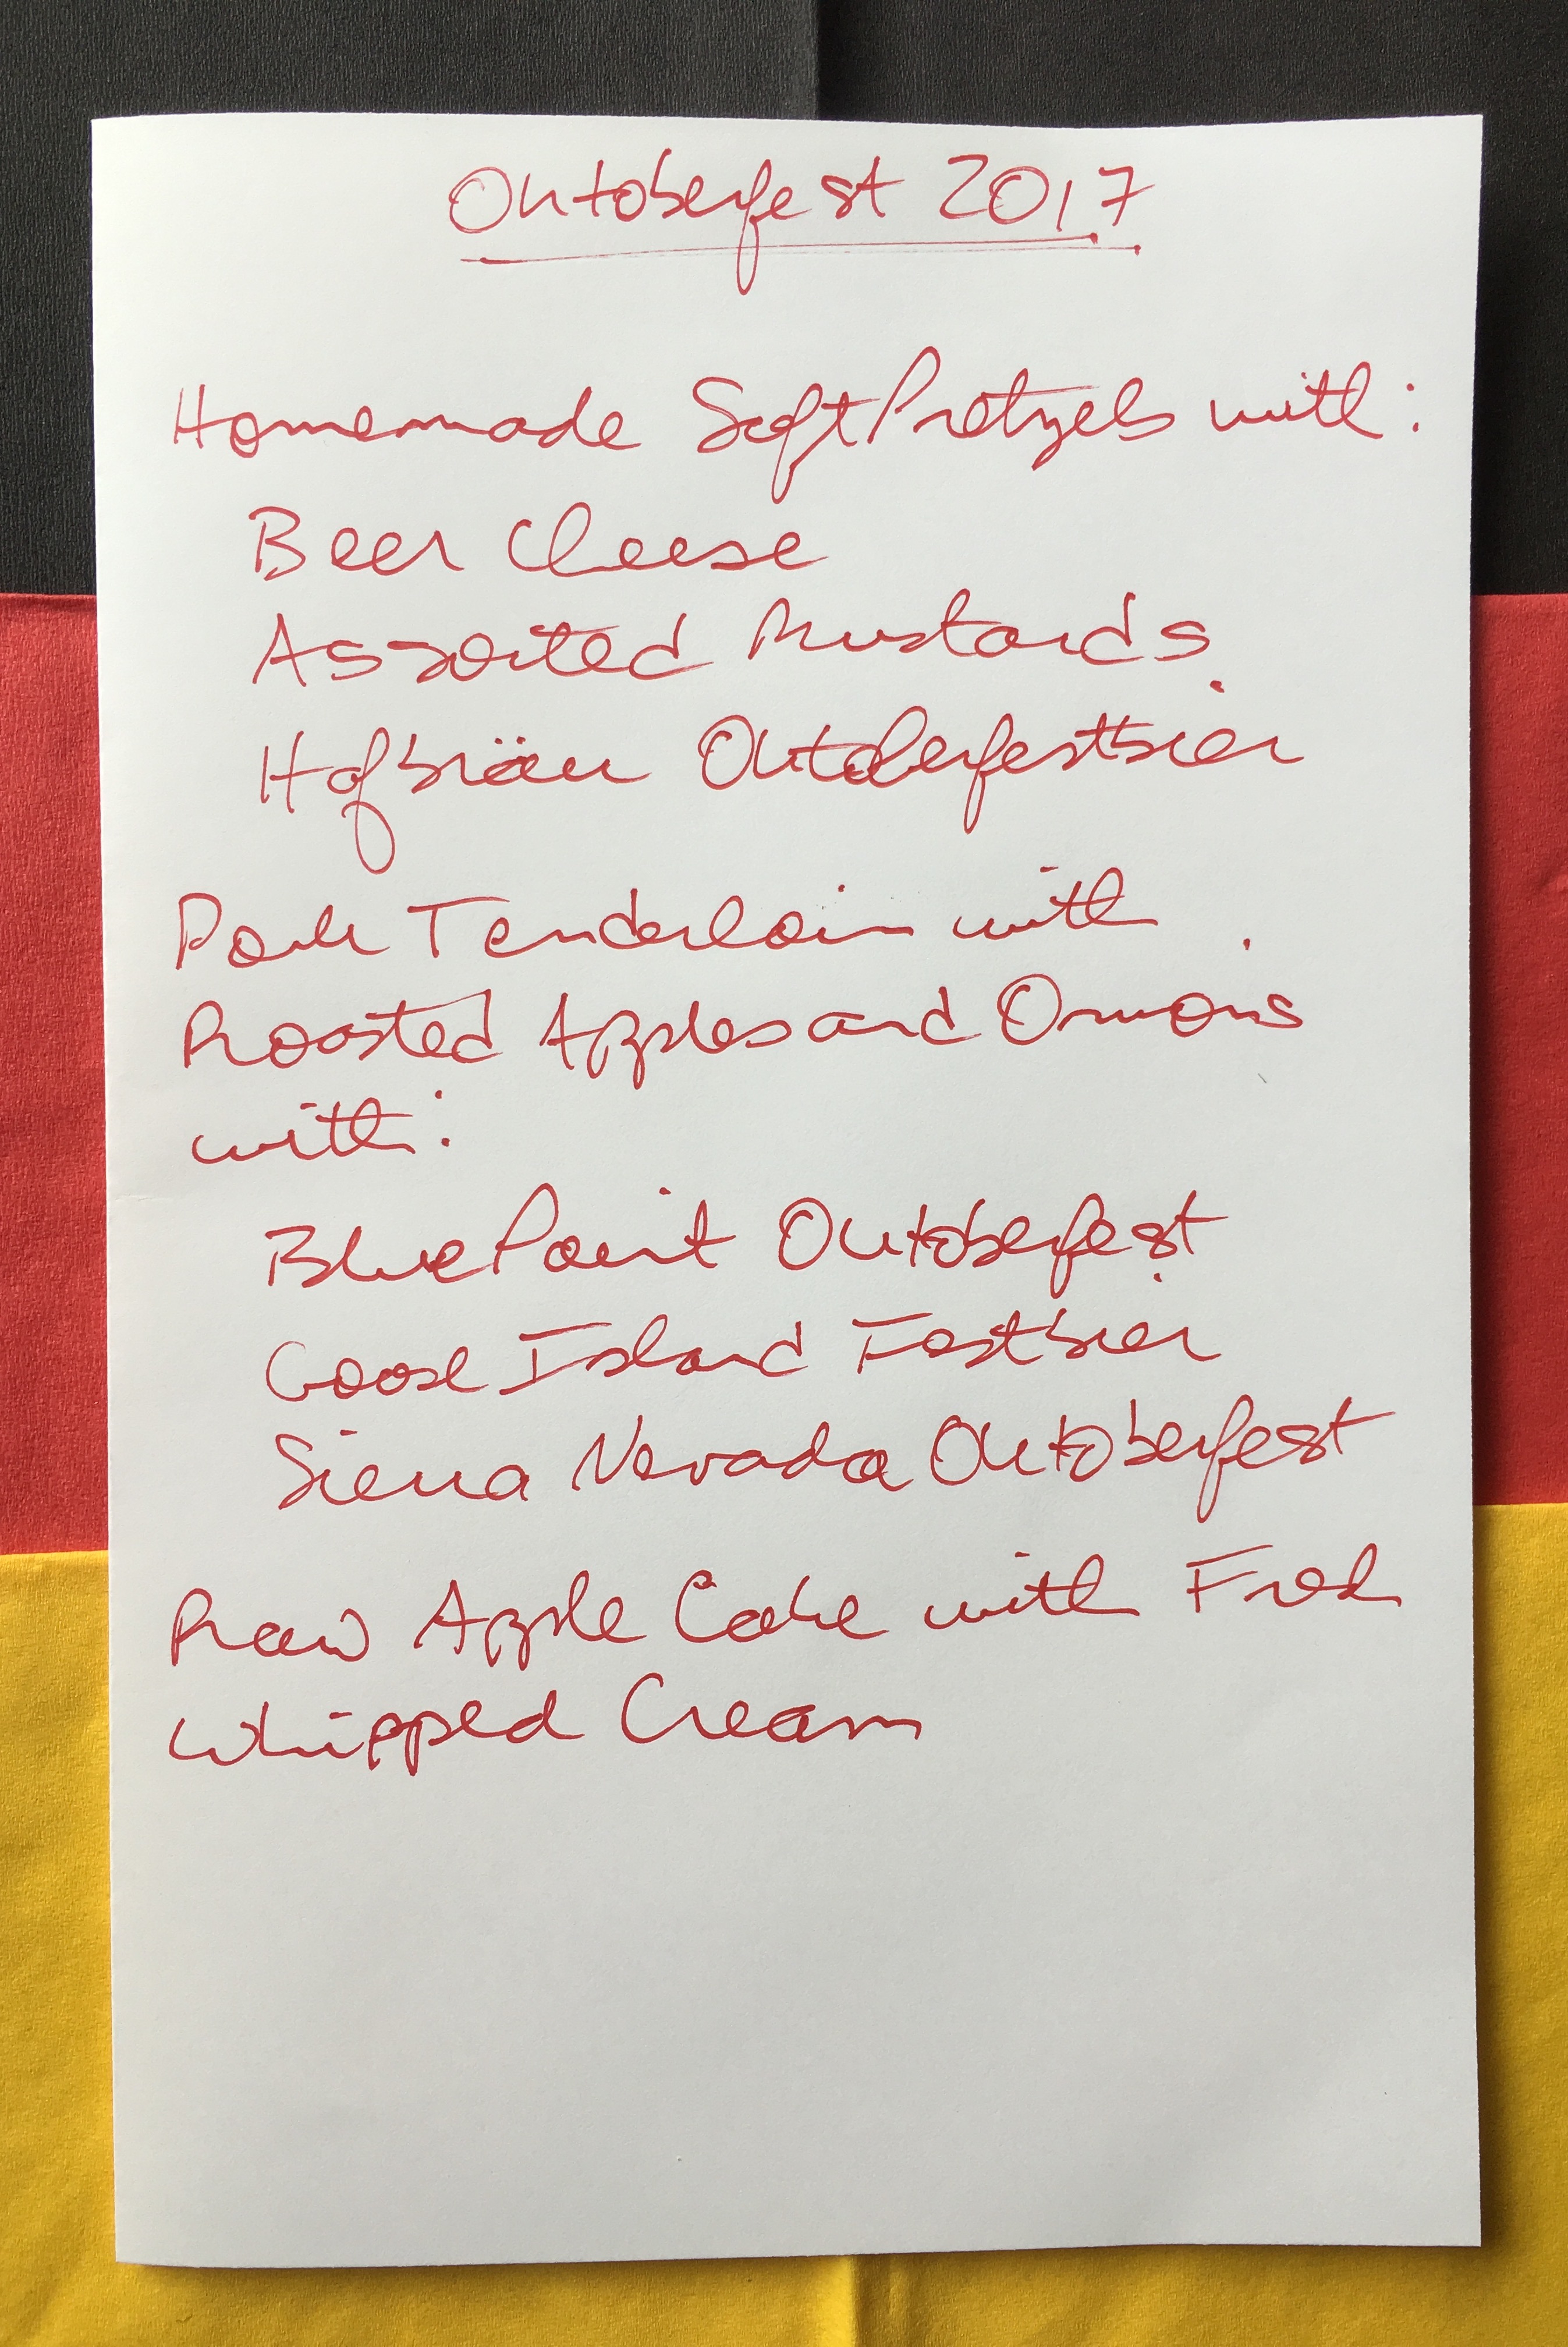 Oktoberfest 2017
Homemade Soft Pretzels with:
Beer Cheese
Assorted Mustards
Hofbräu Oktoberfestbier
Pork Tenderloin with
Roasted Apples and Onions
with:
Blue Point Oktoberfest
Goose Island Festbier
Sierra Nevada Oktoberfest
Raw Apple Cake with Fresh
Whipped Cream